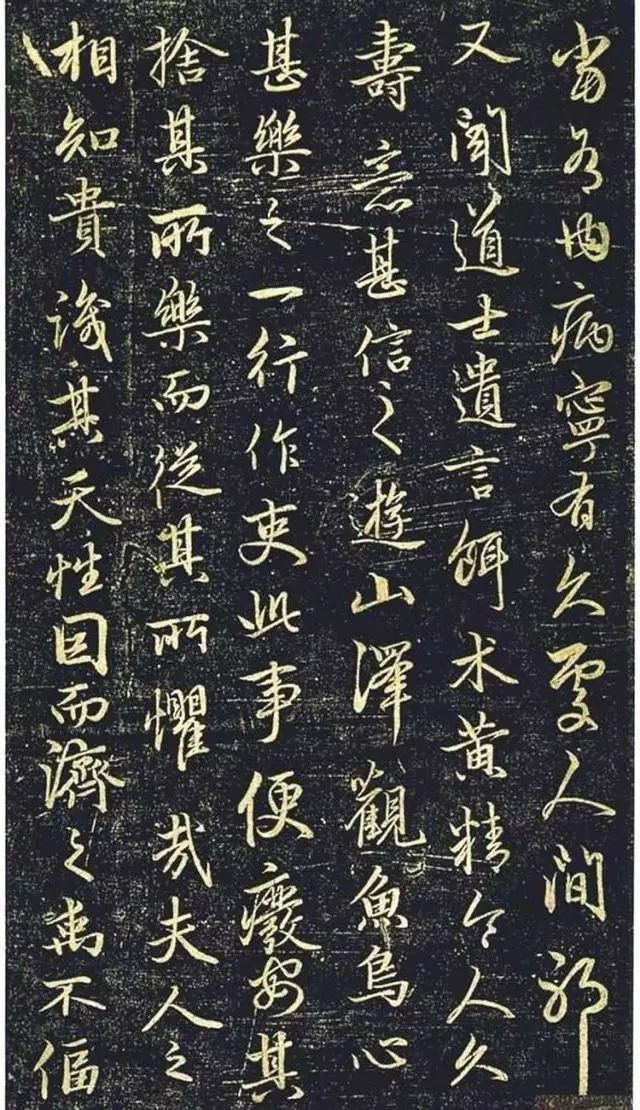 當有內病寧有久處人間邪
又聞道士遺言餌术黃精令人久
壽意甚信之遊山澤觀魚鳥心
甚樂之一行作吏此事便廢安其
捨其所樂而從其所懼哉夫人之
相知貴識其天性因而濟之禹不偪